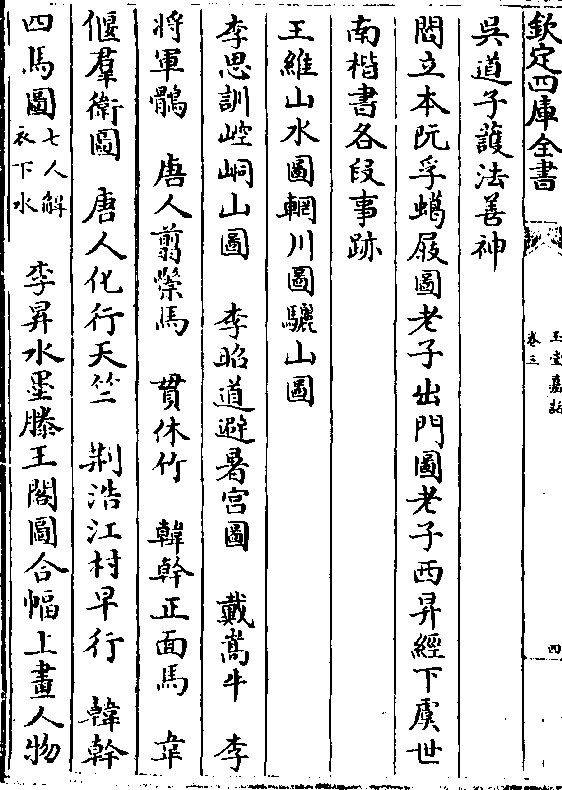 欽定四庫全書
玉堂嘉話
卷三
四
吳道子護法善神
閻立本阮孚蠟屐圖老子出門圖老子西昇經下虞世
南楷書各段事跡
王維山水圖輞川圖驪山圖
李思訓崆峒山圖 李昭道避暑宮圖 戴嵩牛 李
將軍鶻 唐人翦鬃馬 貫休竹 韓幹正面馬 韋
偃羣衛圖 唐人化行天竺 荆浩江村早行 韓幹
四馬圖七人解衣下水 李昇水墨滕王閣圖合幅上畫人物